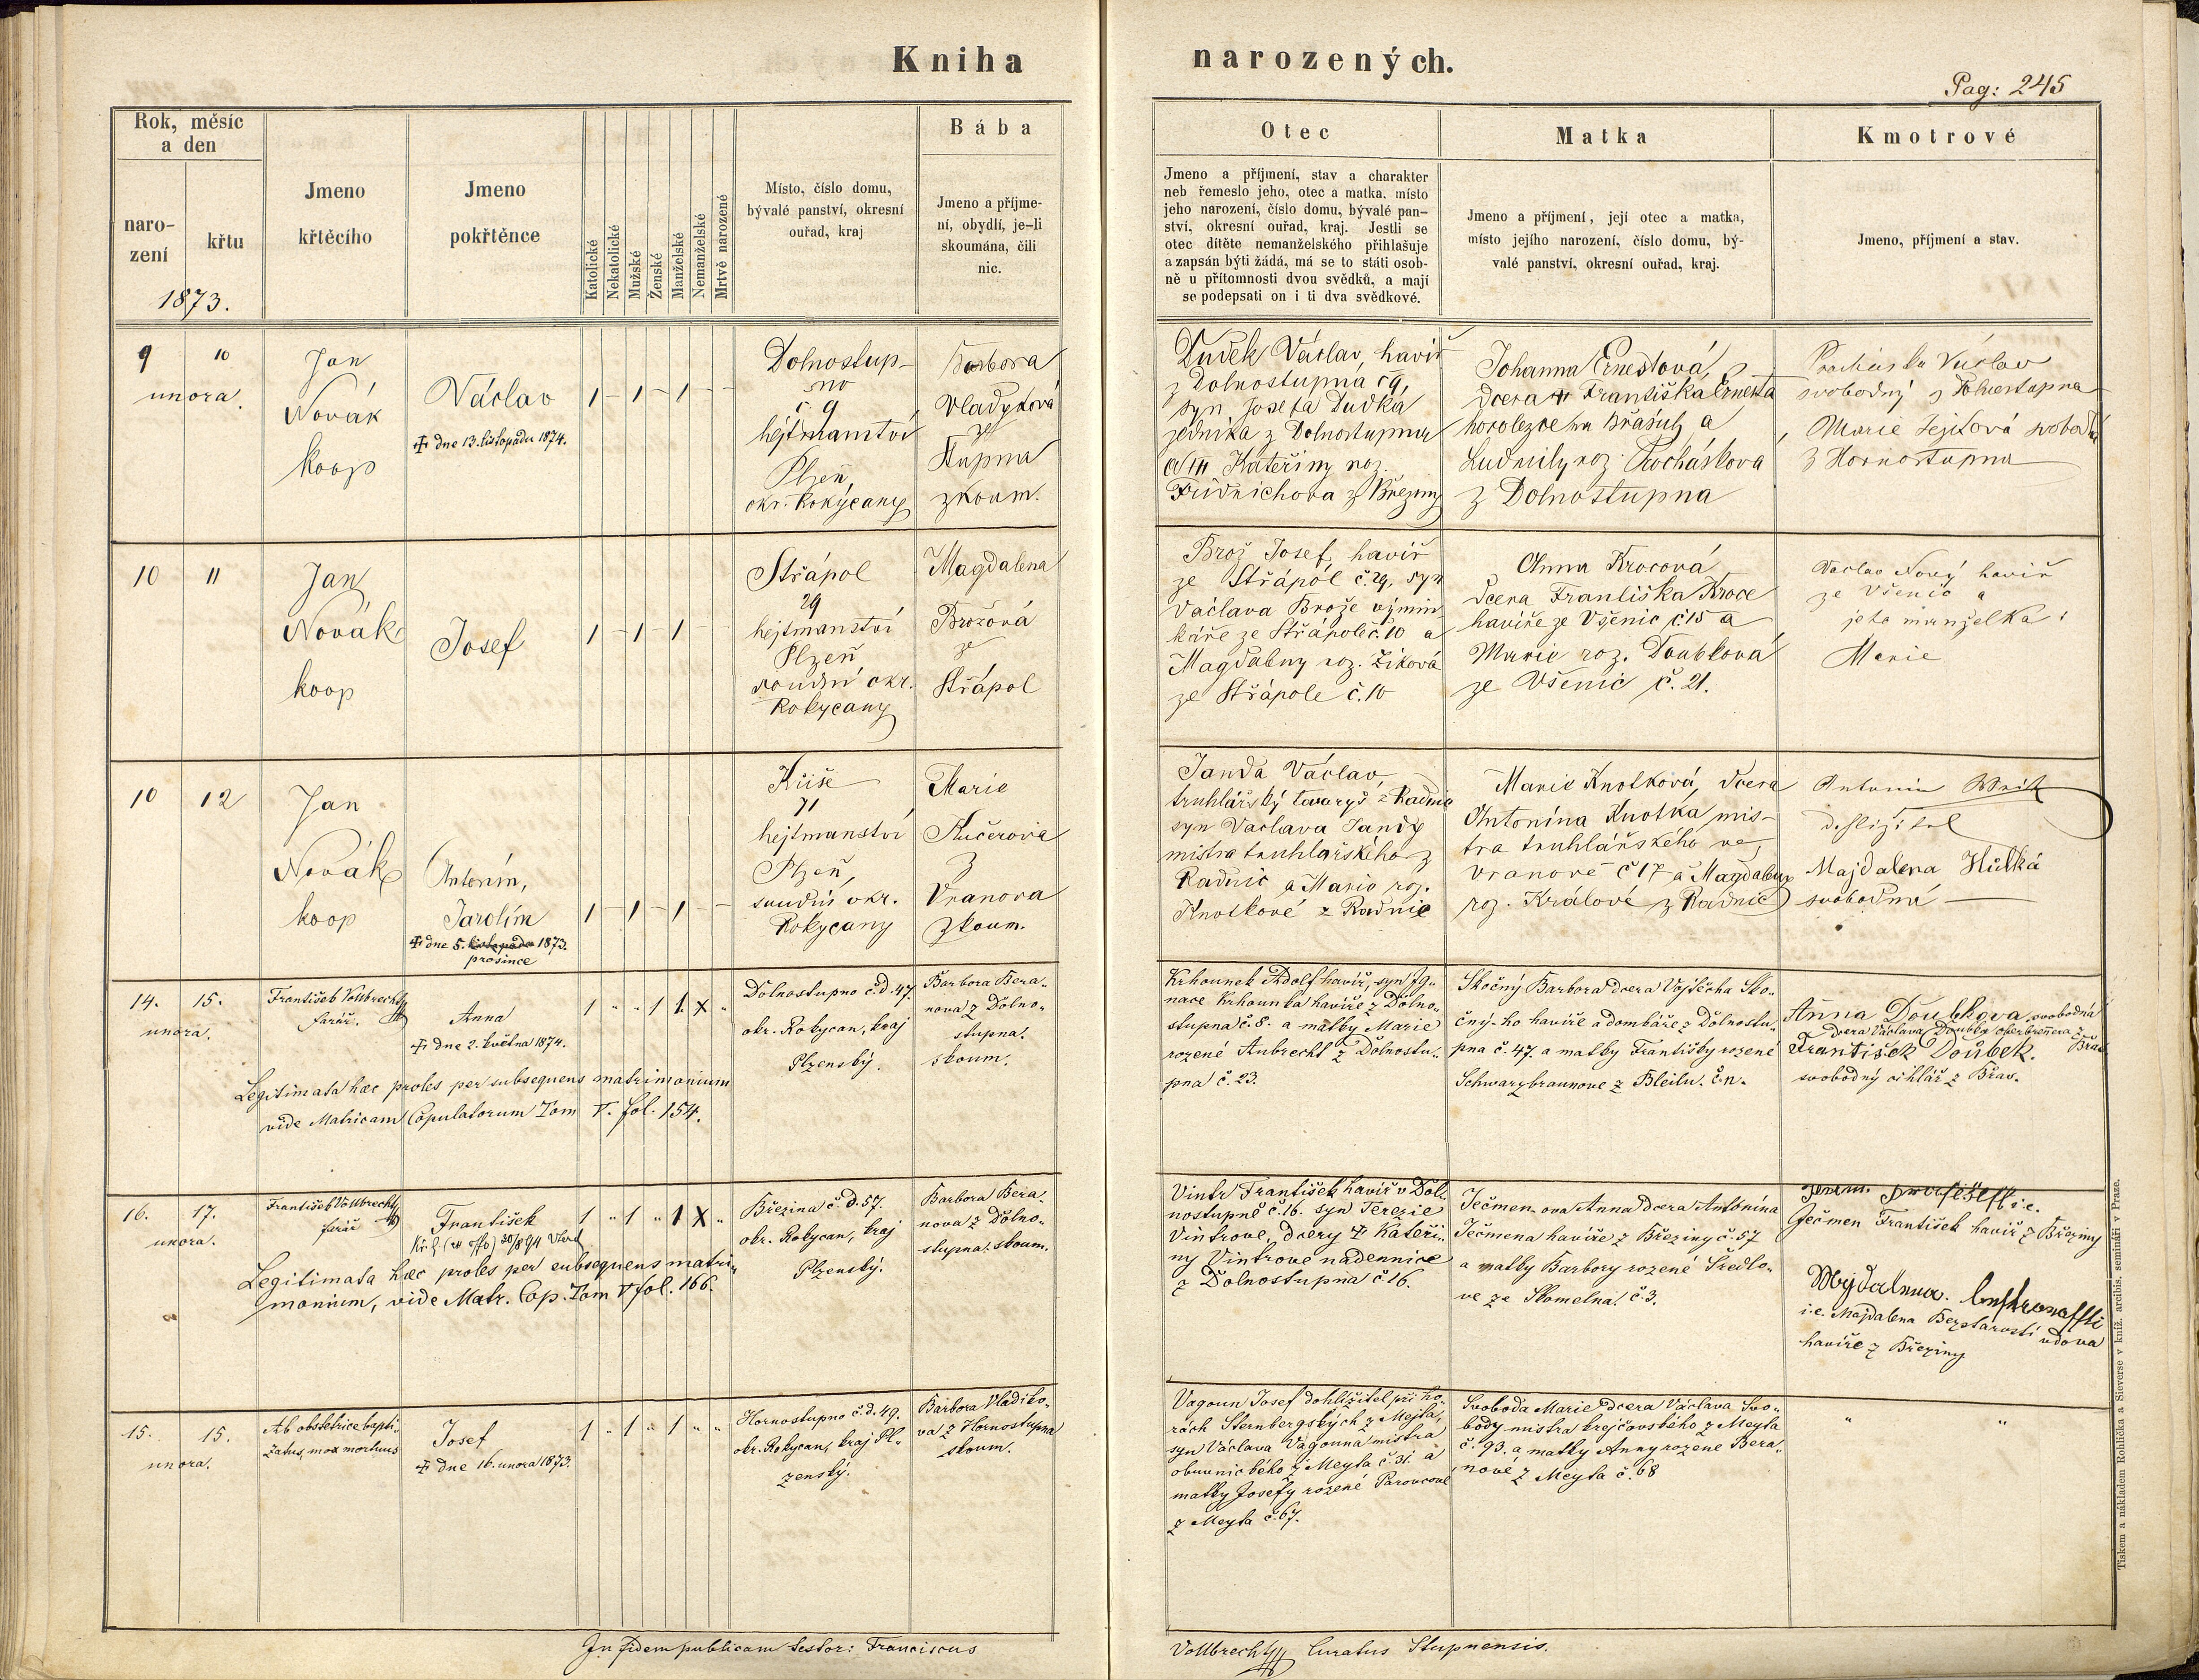 Kniha narozených.
Pag: 245
Rok, měsíc
a den
naro-
zení
křtu
1873.
Jmeno
křtěcího
Jmeno
pokřtěnce
Katolické
Nekatolické
Mužské
Ženské
Manželské
Nemanželské
Mrtvě narozené
Místo, číslo domu,
bývalé panství, okresní
ouřad, kraj
Bába
Jmeno a příjme-
ní, obydlí, je-li
skoumána, čili
nic.
Otec
Jmeno a příjmení, stav a charakter
neb řemeslo jeho, otec a matka, místo
jeho narození, číslo domu, bývalé pan-
ství, okresní ouřad, kraj. Jestli se
otec dítěte nemanželského přihlašuje
a zapsán býti žádá, má se to státi osob-
ně u přítomnosti dvou svědků, a mají
se podepsati on i ti dva svědkové.
Matka
Jmeno a příjmení, její otec a matka,
místo jejího narození, číslo domu, bý-
valé panství, okresní ouřad, kraj.
Kmotrové
Jmeno, příjmení a stav.
9 10
unora.
Jan
Novák
koop
Václav
✠ dne 13. listopadu 1874.
1 - 1 - 1 - -
Dolnostup-
no
č. 9
hejtmanství
Plzeň,
okr. Rokycany
Barbora
Vladyková
ze
Stupna
zkoum.
Dudek Václav, havíř
z Dolnostupna č 9,
syn Josefa Dudka
jedníka z Dolnostupna
a Kateřiny roz.
Fridrichova z Březiny
Johanna Ernestová,
dcera Františka Ernesta
horolezce na Břasích a
Ludmily roz. Procháskova
z Dolnostupna
Procháska Václav
svobodný z Dolnostupna
Marie Sejitová svobodná
z Hornostupna
10 11
Jan
Novák
koop
Josef
1 - 1 - 1 -
Střápol
29
hejtmanství
Plzeň
soudní okr.
Rokycany
Magdalena
Brožová
ze
Střápol
Brož Josef, havíř
ze Střápol č. 29, syn
Václava Brože výmin
káře ze Střápole č. 10 a
Magdaleny roz. Žiková
ze Střápole č. 10
Anna Krocová
dcera Františka Kroce
havíře ze Všenic č 15 a
Marie roz. Doubková
ze Všenic č. 21.
Václav Nový havíř
ze Všenic a
jeho manželka:
Marie
10 12
Jan
Novák
koop
Antonín,
Jarolím
✠ dne 5. listopadu 1873.
prosince
1 - 1 - 1 - -
Kříše
71
hejtmanství
Plzeň,
soudní okr.
Rokycany
Marie
Kučerová
z
Vranova
zkoum.
Janda Václav,
truhlářský tovaryš z Radnic
syn Václava Jandy
mistra truhlářského z
Radnic a Marie roz.
Knotkové z Radnic
Marie Knotková, dcera
Antonína Knotka mis-
tra truhlářského ve
Vranově č 17 a Magdaleny
roz. Králové z Radnic
Antonin
Majdalena Hůlká
svobodná
14. 15.
unora.
František Vollbrecht
farář.
Anna
✠ dne 2. května 1874.
1 " " 1 1. X "
Dolnostupno č.d. 47.
okr. Rokycan, kraj
Plzenský.
Barbora Bera-
nova z Dolno-
stupna.
skoum.
Legitimata haec proles per subsequens matrimonium
vide Matricam Copulatorum Tom V. fol. 154.
Krhounek Adolf havíř, syn Ig-
nace Krhounka havíře z Dolno-
stupna č. 8. a matky Marie
rozené Aubrecht z Dolnostu-
pna č. 23.
Skočný Barbora dcera Vojtěcha Sko-
čný-ho havíře a dombáře z Dolnostu-
pna č. 47. a matky Františky rozené
Schwarzbraunove z Bleilu. č. n.
Anna Doubkova svobodná
dcera Václava Doubka oberbrenera z Břas
František Doubek.
svobodný cihlář z Břas.
16. 17.
unora.
František Vollbrecht
farář
František
1 " 1 " 1 X "
Březina č. d. 57.
okr. Rokycan, kraj
Plzenský.
Barbora Bera-
nova z Dolno-
stupna. skoum.
Legitimata haec proles per subsequens matri-
monium, vide Matr. Cop. Tom V fol. 166.
Vintr František havíř v Dol-
nostupně č. 16. syn Terezie
Vintrove, dcery ✠ Kateři-
ny Vintrove nádennice
z Dolnostupna č 16.
Ječmen-ova Anna dcera Antonína
Ječmena havíře z Březiny č. 57
a matky Barbory rozené Šedlo-
ve ze Skomelna. č. 3.
i.e.
Ječmen František havíř z Březiny
i.e. Majdalena Bezstarosti vdova
havíře z Březiny
15. 15.
unora.
Ab obstetrice bapti-
zatus, mox mortuus
Josef
✠ dne 16. unora 1873.
1 " 1 " 1 " "
Hornostupno č.d. 49.
okr. Rokycan, kraj Pl-
zenský.
Barbora Vladiko-
va z Hornostupna
skoum.
Vagoun Josef dohlížitel při ho-
rách Šternbergských z Mejta,
syn Václava Vagouna mistra
obuvnického z Meyta č. 31. a
matky Josefy rozené Parovcové
z Meyta č. 67.
Svoboda Marie dcera Václava Svo-
body mistra krejčovského z Meyta
č. 93. a matky Anny rozene Bera-
nové z Meyta č. 68
" "
In fidem publicam testor: Franciscus Vollbrecht Curatus Stupnensis.
Tiskem a nákladem Rohlíčka a Sieverse v kníž. arcibis. semináři v Praze.